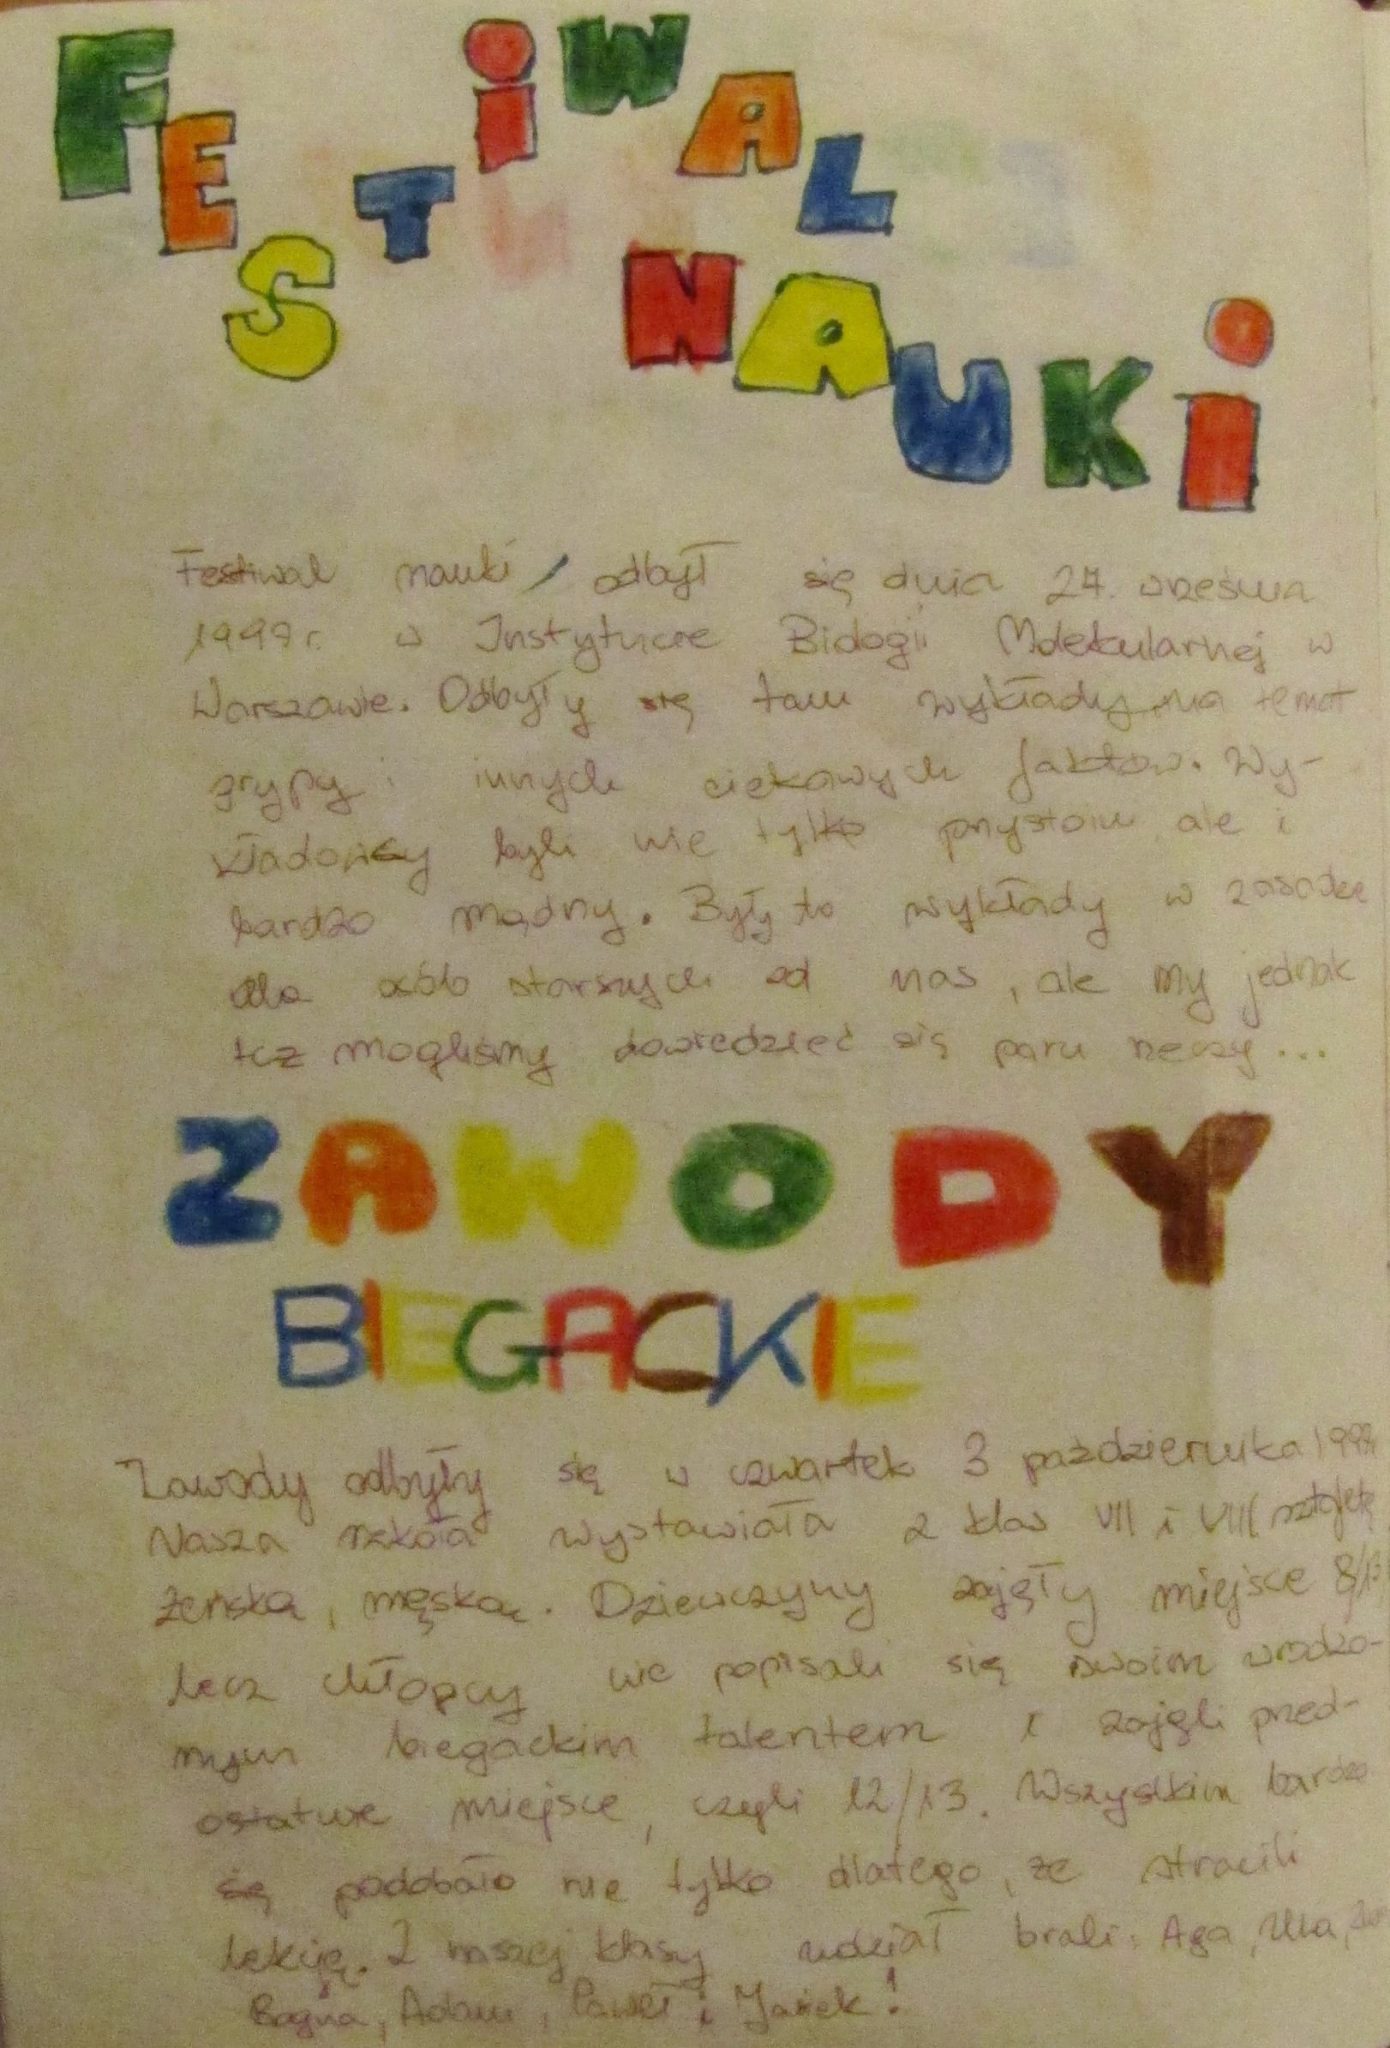 FESTiWAL
NAUKi
Festiwal nauki odbył się dnia 27. września
1999r. w Instytucie Biologii Molekularnej w
Warszawie. Odbyły się tam wykłady na temat
grypy i innych ciekawych faktów. Wy-
kładowcy byli nie tylko przystojni ale i
bardzo mądrzy. Były to wykłady w zasadzie
dla osób starszych od nas, ale my jednak
też mogliśmy dowiedzieć się paru rzeczy...
ZAWODY
BIEGACKIE
Zawody odbyły się w czwartek 3 października
Nasza szkoła wystawiała z klas VII i VIII sztafetę
żeńską, męską. Dziewczyny zajęły miejsce 8/13
lecz chłopcy nie popisali się swoim wrodzo-
nym biegackim talentem i zajęli przed-
ostatnie miejsce, czyli 12/13. Wszystkim bardzo
się podobało nie tylko dlatego, że stracili
lekcje. Z naszej klasy udział brali: Aga, Ula,
Bogna, Adam, Paweł i Jacek!